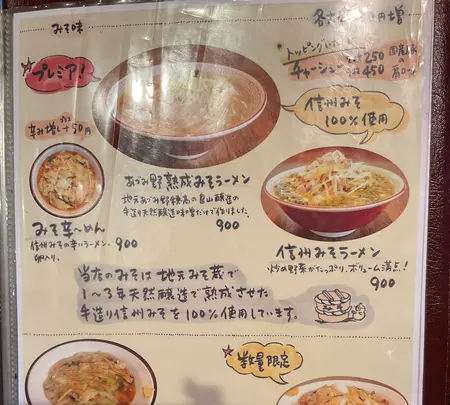 みそ味
プレミア!
トッピング
250
チャーシュー 450
信州みそ
100%使用
辛み増し+50円
みそ辛〜めん
信州みその辛いラーメン、
卵入り。
900
あづみ野熟成みそラーメン
地元あづみ野穂高の
手造り天然醸造味噌だけで作りました。
900
信州みそラーメン
炒め野菜がたっぷり、ボリューム満点!
900
当店のみそは地元みそ蔵で
1〜3年天然醸造で熟成させた
手造り信州みそを100%使用しています。
数量限定